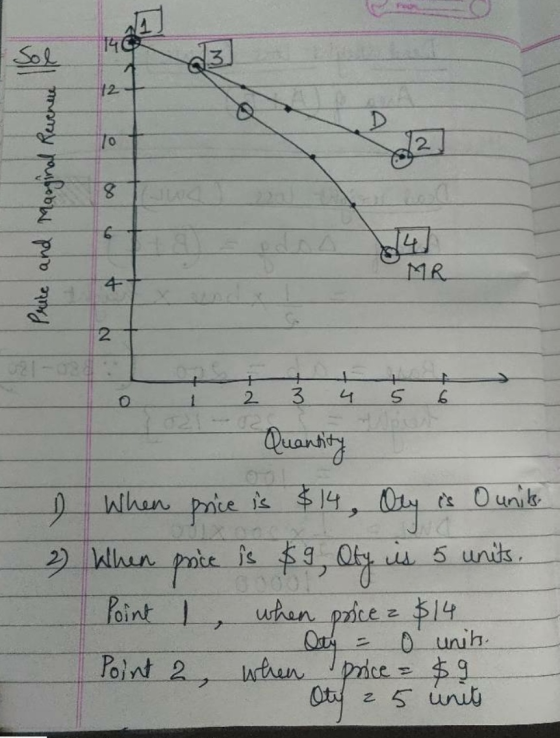 Sol
Price and Marginal Revenue
14
12
10
8
6
4
2
0
1
2
3
4
5
6
Quantity
1
3
D
2
4
MR
1) When price is $14, Qty is 0 units.
2) When price is $9, Qty is 5 units.
Point 1, when price = $14
Qty = 0 units.
Point 2, when price = $9
Qty = 5 units